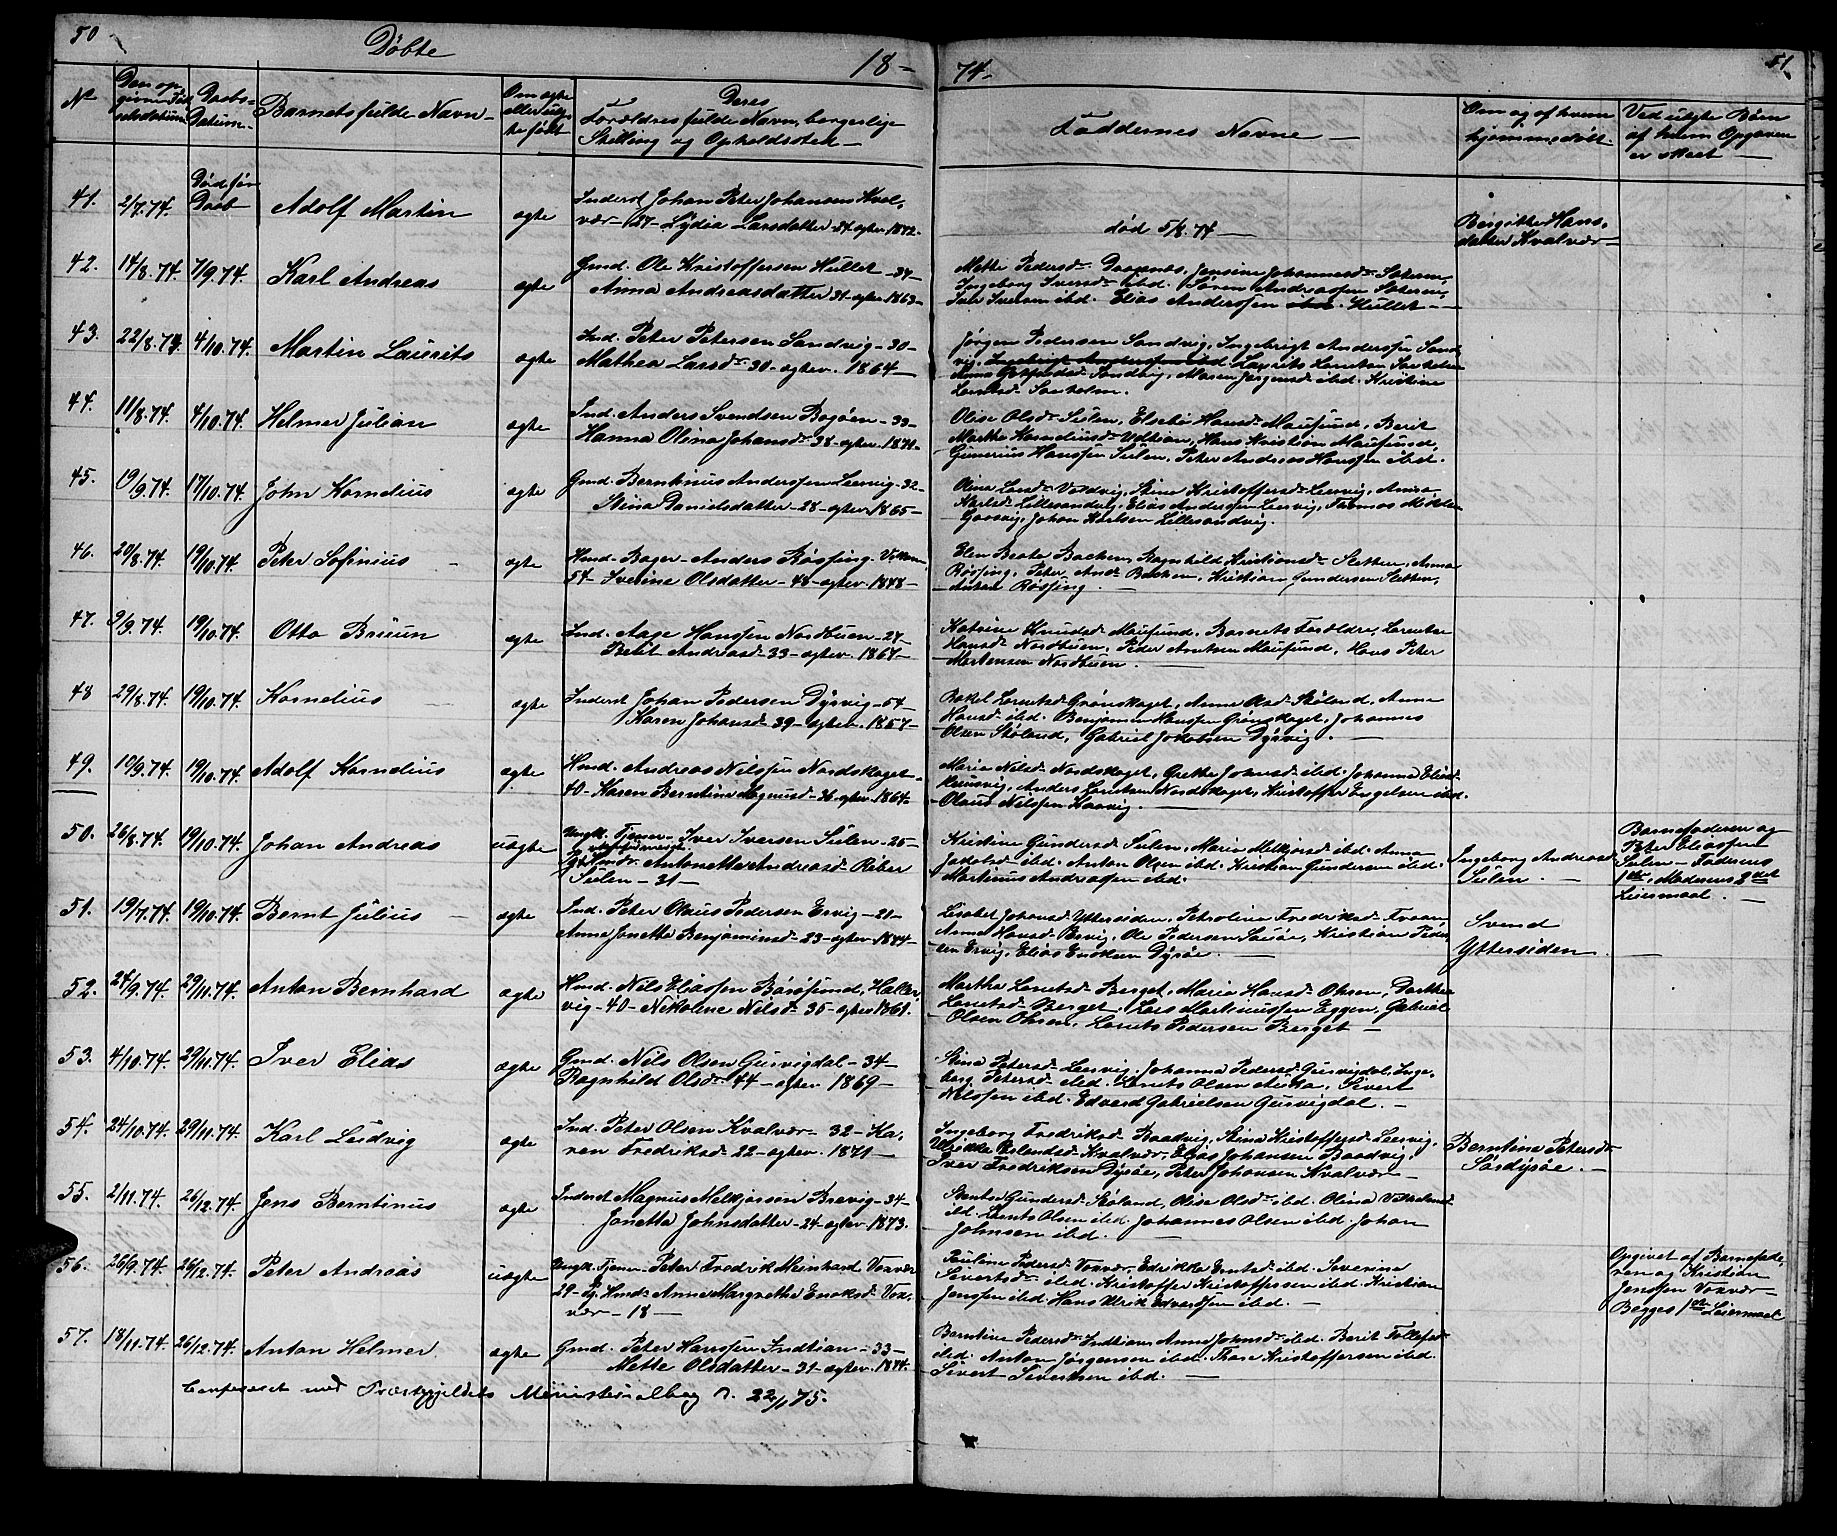 50
Døbte
18-
74-
51
No
Den op-
Daabs-
Datum-
Barnets fulde Navn-
Om ægte
eller uæg-
te født
Deres
Forældres fulde Navn, borgerlige
Stilling og Opholdssted-
Faddernes Navne-
Om og af hvem
hjemmedøbt
Ved uægte Børn
af hvem Opgaven
er skeet-
41. 2/7.74. Død før Daab Adolf Martin ægte
Inderst Johan Peter Johansen Kval-
vær-27-Lydia Larsdatter-24-ægtev. 1872-
død 5/8.74-
Birgitte Hans-
datter Kvalvær-
42. 14/8.74. 7/9.74. Karl Andreas ægte
Gmd. Ole Kristoffersen Hullet-34-
Anna Andreasdatter 31-ægtev. 1863-
Iver Iversen ibd. Elias Anderssen Hullet-
43. 22/8.74 4/10.74. Martin Laurits ægte
Ind. Peter Petersen Sandvig-30-
Mathea Larsdr 30-ægtev. 1864-
Jørgen Pedersen Sandvig, Ingebrigt Anderssen Sand-
44. 11/8.74. 4/10.74. Helmer Julian ægte
Ind. Anders Svendsen Bogøen-33-
Hanna Olina Johansdr 38-ægtev. 1874-
Olise Olsdr Sulen, Elsebe Hansdr Mausund, Berit
Martha Korneliusdr Vdtian, Hans Kristian Mausund,
Gunerius Hanssen Sulen, Peter Andreas Hanssen ibd.
45. 19/9.74. 17/10.74. John Kornelius ægte
Gmd. Berntinus Anderssen Leervig-32-
Stina Danielsdatter-28-ægtev. 1865-
Gaasvig, Johan Karlsen Lillesandvig.
46. 20/8.74. 19/10.74. Peter Sofinius- ægte
Hmd. Bager-Anders Røssing-
54-Iverine Olsdatter-48-ægtev. 1848-
Elen Beate Bachen, Ragnhild Kristiansdr Sletten, Anna
Røssing, Peter Andr. Bachen, Kristian Gundersen Sletten,
Anton Røssing.-
47. 9/9.74. 19/10.74. Otto Bruun ægte
Ind. Aage Hanssen Nordbuen-24-
Berit Andreasdr 33-ægtev. 1867-
Katrine Knudsdr Mausund, Barnets Forældre, Lorentse
Hansdr Nordbuen, Peder Arntsen Mausund, Hans Peter
Mortensen Nordbuen-
48 29/8.74. 19/10.74. Kornelius- ægte
Inderst Johan Pedersen Dyrvig-54-
Karen Johansdr 39-ægtev. 1857-
Hansdr ibd. Benjamin Hanssen Grønskaget, Johannes
Olsen Skøland, Gabriel Jakobsen Dyrvig.-
49. 10/9.74. 19/10.74. Adolf Kornelius ægte
Hmd. Andreas Nilssen Nordskaget-
40-Karen Berntine Magnusdr-36-ægtev. 1864-
Maria Nilsdr Nordskaget, Grethe Johnsdr ibd. Johanna Eliasdr
Kaasvig, Anders Larsen Nordskaget, Kristoffer Engelsen ibd.
Olaus Nilssen Kaasvig.-
50. 26/8.74. 19/10.74. Johan Andreas uægte
Ungk. Tjener-Iver Iversen Sulen-25-
Pg. Hmdr. Antonette Andreasdr Reber
Sulen-31-
Kristine Gundersdr Sulen, Maria Melkjørsdr ibd. Anna
Jakobsdr ibd. Anton Olsen ibd. Kristian Gundersen ibd.
Martinus Andreassen ibd.
Ingeborg Andreasdr
Sulen.-
Barnefaderen og
Peter Eliassen
Sulen-Faderens
1ste, Moderens 2det
Leiermaal.-
51. 19/7.74. 19/10.74. Bernt Julius- ægte
Ind. Peter Olaus Pedersen Ervig-21-
Anne Jonetta Benjaminsdr-23-ægtev. 1874-
Lisabet Johansdr Yttersiden, Petroline Fredriksdr Traan
Anna Hansdr Ervig, Ole Pedersen Sauøe, Kristian Peder-
sen Ervig, Elias Enoksen Dyrøe.-
Svend
Yttersiden.
52. 24/9.74. 29/11.74. Anton Bernhard ægte
Hmd. Nils Eliassen Børøsund, Haller-
vig-40-Nikoline Nilsdr-35-ægtev. 1861.
Martha Lorentsdr Berget, Maria Hansdr Ohren, Dorthea
Lorentsdr Berget, Lars Martinussen Eggen, Gabriel
Olsen Ohren, Lorents Pedersen Berget-
53. 4/10.74. 29/11.74. Iver Elias ægte
Gmd. Nils Olsen Gusvigdal-34-
Ragnhild Olsdr 44-ægtev. 1869-
Stina Petersdr Leervig, Johanna Pedersdr Gusvigdal, Inge-
borg Petersdr ibd. Lorents Olsen Aukra, Sivert
Nilssen ibd. Edvard Gabrielsen Gusvigdal.-
54. 24/10.74. 29/11.74. Karl Ludvig ægte
Ind. Peter Olsen Kvalvær-32-Ka-
ren Fredriksdr-22-ægtev. 1871-
Ingeborg Fredriksdr Baadvig, Stina Kristoffersdr Leervig,
Ulrikke Erlandsdr Kvalvær, Elias Johansen Baadvig,
Iver Fredriksen Dyrøe, Peter Johansen Kvalvær-
Berntine Petersdr
Sørdyrøe.-
55. 2/11.74. 26/12.74. Jens Berntinus ægte
Inderst Magnus Melkjørsen Brevig-34-
Jonetta Johnsdatter-24-ægtev. 1873.
ibd. Lorents Olsen ibd. Johannes Olsen ibd. Johan
Johnsen ibd.-
56. 26/9.74. 26/12.74. Peter Andreas uægte
Ungk. Tjener-Peter Fredrik Meinhard Voxvær
29-Pg. Hmdr Anne Margrethe Enoksdr Vox-
vær-18-
Pauline Pedersdr Voxvær, Edrikke Erntsdr ibd. Severine
Sivertsdr ibd. Kristoffer Kristoffersen ibd. Kristian
Jenssen ibd. Hans Ulrik Edvardsen ibd.-
Opgivet af Barnefade-
ren og Kristian
Jenssen Voxvær-
Begges 1ste Leiermaal
57. 18/11.74. 26/12.74. Anton Helmer ægte
Gmd. Peter Hanssen Indtian-33-
Mette Olsdatter-31-ægtev. 1874.
Berntine Pedersdr Indtian, Anne Johnsdr ibd. Berit Tollefsdr
ibd. Anton Jørgensen ibd. Thore Kristoffersen ibd.
Sivert Sivertsen ibd.-
Confereret med Præstegjeldets Ministerialbog d. 22/1 75.